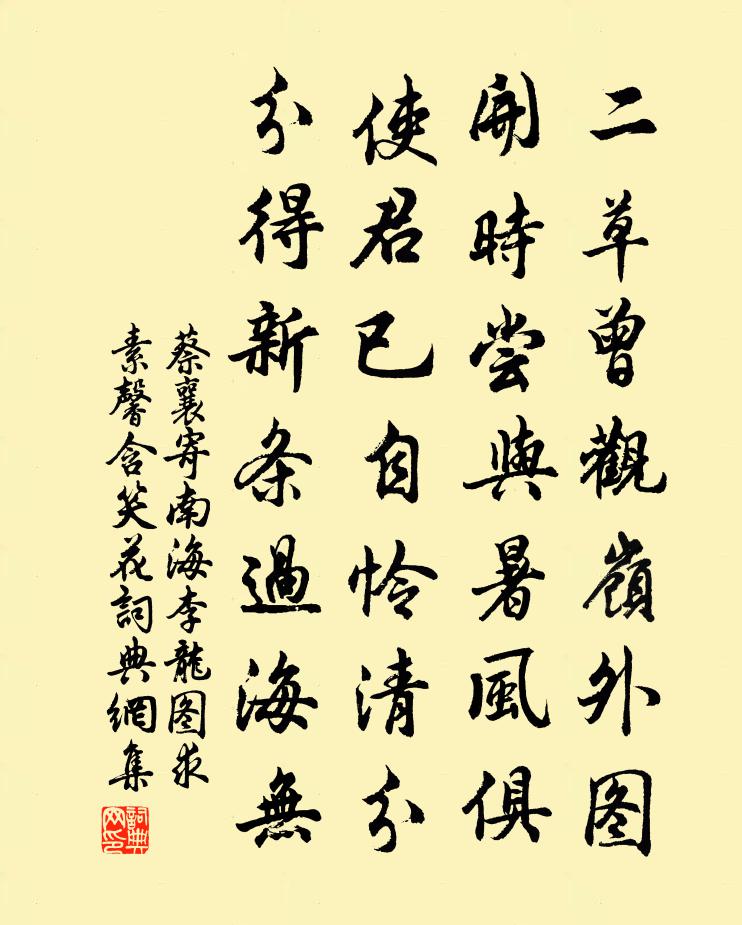 二草曾觀嶺外图
開時嘗與暑風俱
使君已自怜清分
分得新条過海無
蔡襄寄南海李龍图求
素馨含笑花詞典網集
詞典网印